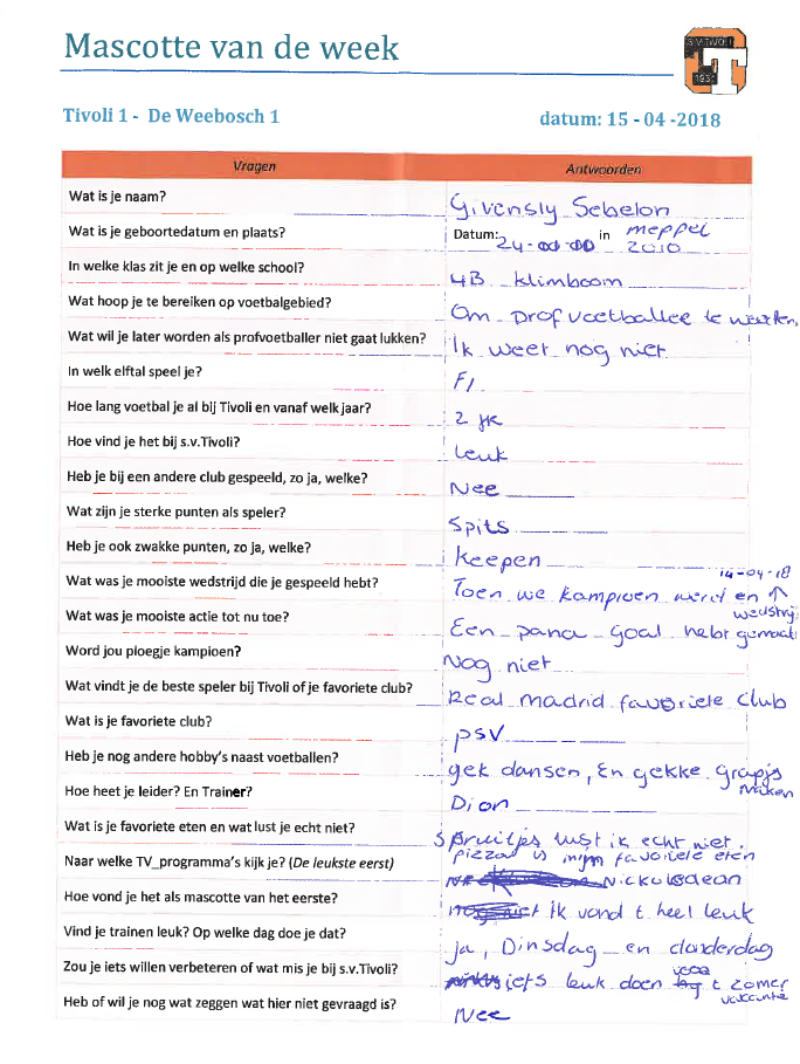 Mascotte van de week
S.V. TIVOLI
T
1931
Tivoli 1 - De Weebosch 1 datum: 15 - 04 -2018
Vragen Antwoorden
Wat is je naam? Givensly Sebelon
Wat is je geboortedatum en plaats? Datum: 24- in meppel
2010
In welke klas zit je en op welke school? 4B klimboom
Wat hoop je te bereiken op voetbalgebied? Om profvoetballer te worden,
Wat wil je later worden als profvoetballer niet gaat lukken? Ik weet nog niet
In welk elftal speel je? F1
Hoe lang voetbal je al bij Tivoli en vanaf welk jaar? 2 jr
Hoe vind je het bij s.v.Tivoli? leuk
Heb je bij een andere club gespeeld, zo ja, welke? Nee
Wat zijn je sterke punten als speler? Spits
Heb je ook zwakke punten, zo ja, welke? keepen
14-04-18
Wat was je mooiste wedstrijd die je gespeeld hebt? Toen we kampioen werd en ↑
wedstrij
Wat was je mooiste actie tot nu toe? Een pana goal hebt gemaakt
Word jou ploegje kampioen? Nog niet
Wat vindt je de beste speler bij Tivoli of je favoriete club? Real madrid favoriete club
Wat is je favoriete club? psv
Heb je nog andere hobby's naast voetballen? gek dansen, En gekke grapjs
maken
Hoe heet je leider? En Trainer? Dion
Wat is je favoriete eten en wat lust je echt niet? Spruitjes lust ik echt niet.
pizza is mijn favoriete eten
Naar welke TV_programma's kijk je? (De leukste eerst) Nickolodean
Hoe vond je het als mascotte van het eerste? ik vond t heel leuk
Vind je trainen leuk? Op welke dag doe je dat? ja, Dinsdag en donderdag
Zou je iets willen verbeteren of wat mis je bij s.v.Tivoli? iets leuk doen voor t zomer
vacantie
Heb of wil je nog wat zeggen wat hier niet gevraagd is? Nee